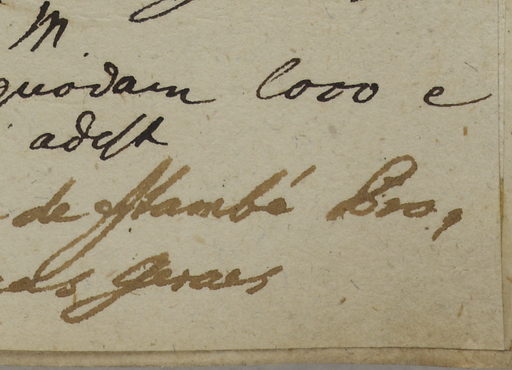 m.
quodam loco e
adest
de Itambé Pro,
as Geraes